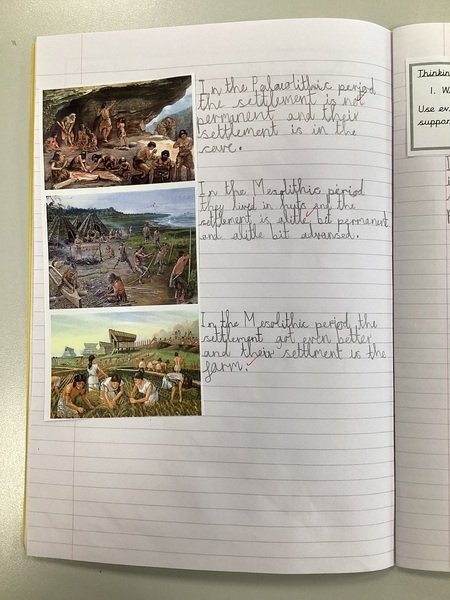 In the Palaeolithic period
the settlement is not
permanent and their
settlement is in the
cave.
In the Mesolithic period
they lived in huts and the
settlement is alitle bit permanent
and alitle bit advansed.
In the Mesolithic period, the
settlement got even better
and their settlment is the
farm.
Thinking
1. W
Use ev
suppor